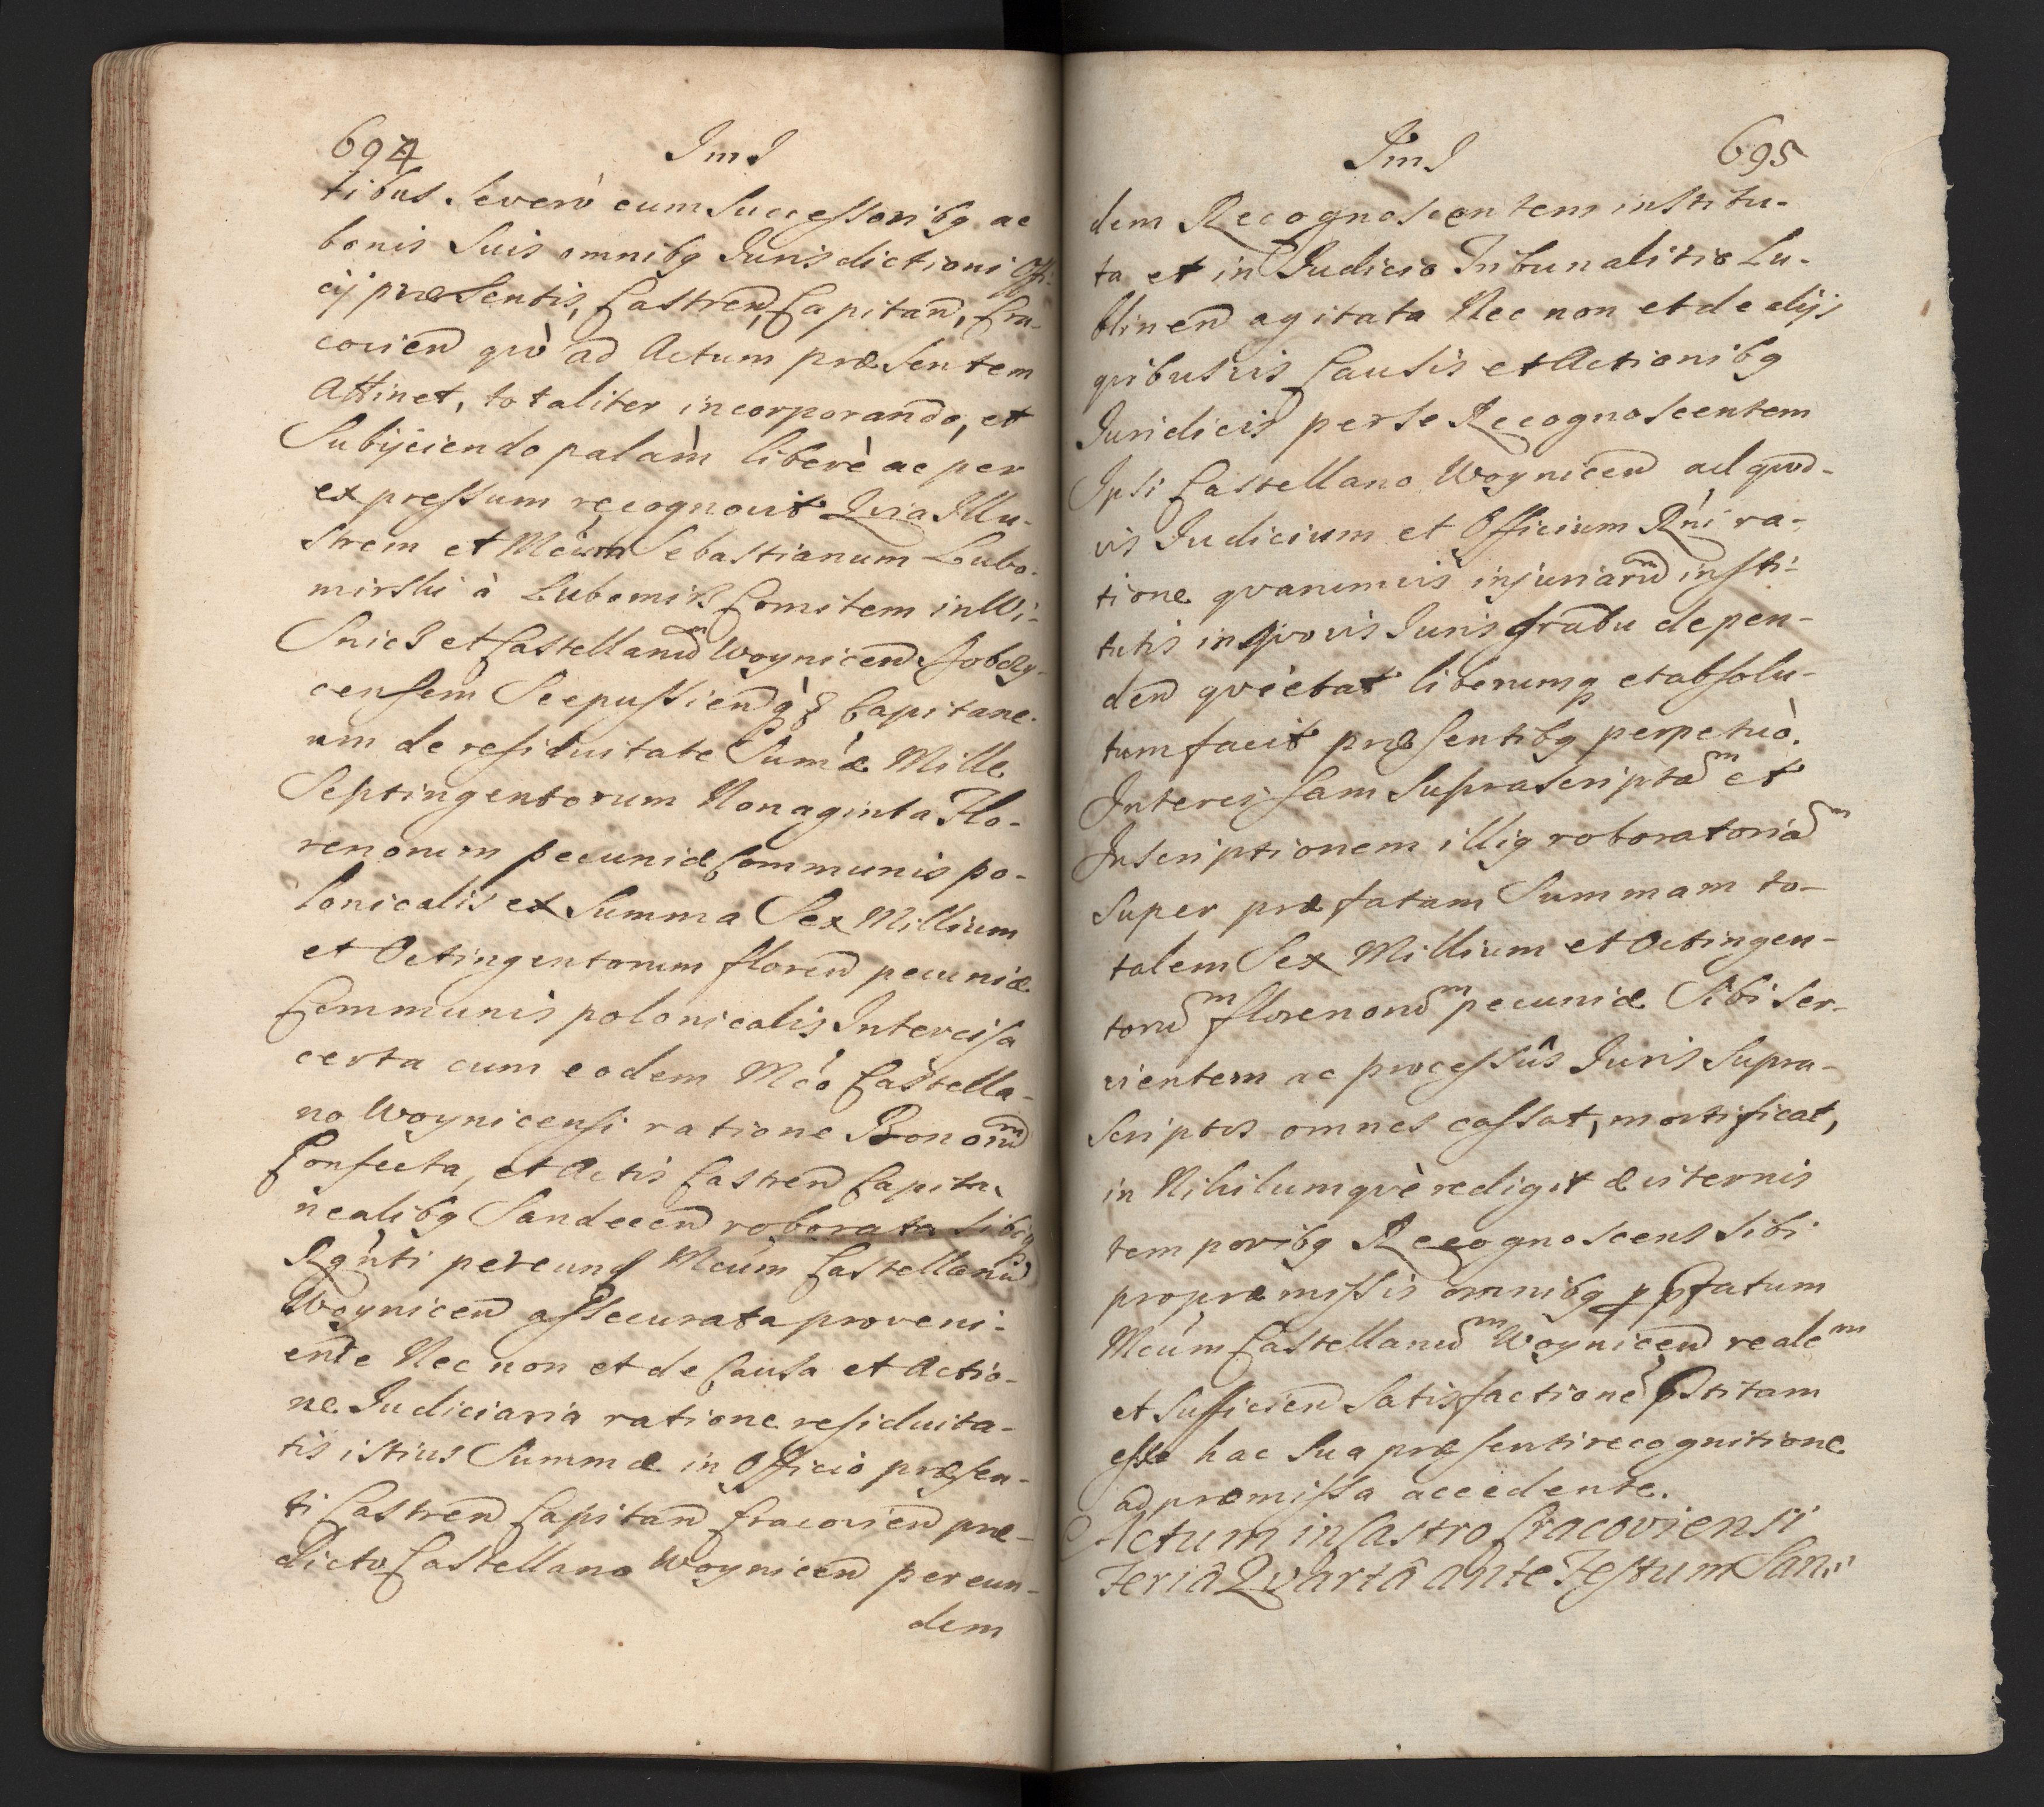 694
ImJ
tibus Severò cum Successoribq ac
bonis Suis omnibq Jurisdictioni Offi-
cij præsentis, Castren, Capitan, Cra-
covien qvò ad Actum præsentem
Attinet, totaliter incorporando, et
Subijciendo palàm liberè ac per
expressum recognovit Qvia Illu-
strem et Mcum Sebastianum Lubo-
mirski à Lubomirz Comitem in Wi-
Snicz et Castellanum Woynicen Dobczy-
censem Scepussienq Capitane-
um de residuitate Sumæ Mille
Septingentorum Nonaginta Flo-
renorum pecuniæ Communis po-
lonicalis ex Summa Sex Millium
et Octingentorum floren pecuniæ
Communis polonicalis Intercisa
certa cum eodem Mco Castella-
no Woynicensi ratione Bonorum
Confecta, et Actis Castren Capita-
nealibq Sandecen roborata sibi
Rgnti per eund Mcum Castellanum
Woynicen assecurata proveni-
ente Nec non et de Causa et Actio-
ne Judiciaria ratione residuita-
tis istius Summæ in Officio præsen-
ti Castren Capitan Cracovien præ-
dicto Castellano Woynicen per eun-
dem
ImJ
695
dem Recognoscentem institu-
ta et in Judicio Tribunalitio Lu-
blinen agitata Nec non et de alijs
qvibusvis Causis et Actionibq
Juridicis per se Recognoscentem
Ipsi Castellano Woynicen ad qvod-
vis Judicium et Officium Rni ra-
tione qvarumvis injuriarum insti-
tutis in qvovis Juris gradu depen-
den qvietat liberumq et absolu-
tum facit præsentibq perpetuò.
Intercisam Suprascriptam et
Inscriptionem illiq roboratoriam
Super præfatam Summam to-
talem Sex Millium et Octingen-
torum florenorum pecuniæ Sibi Ser-
vientem ac processûs Juris Supra-
scriptos omnes cassat, mortificat,
in Nihilumqvè redigit æviternis
temporibq Recognoscens Sibi
pro præmissis omnibq p pfatum
Mcum Castellanum Woynicen realem
et Sufficien Satisfactionem pstitam
esse hac Sua præsenti recognitione
ad præmissa accedente.
Actum in Castro Cracoviensi
Feriâ Qvartâ Ante Festum San-